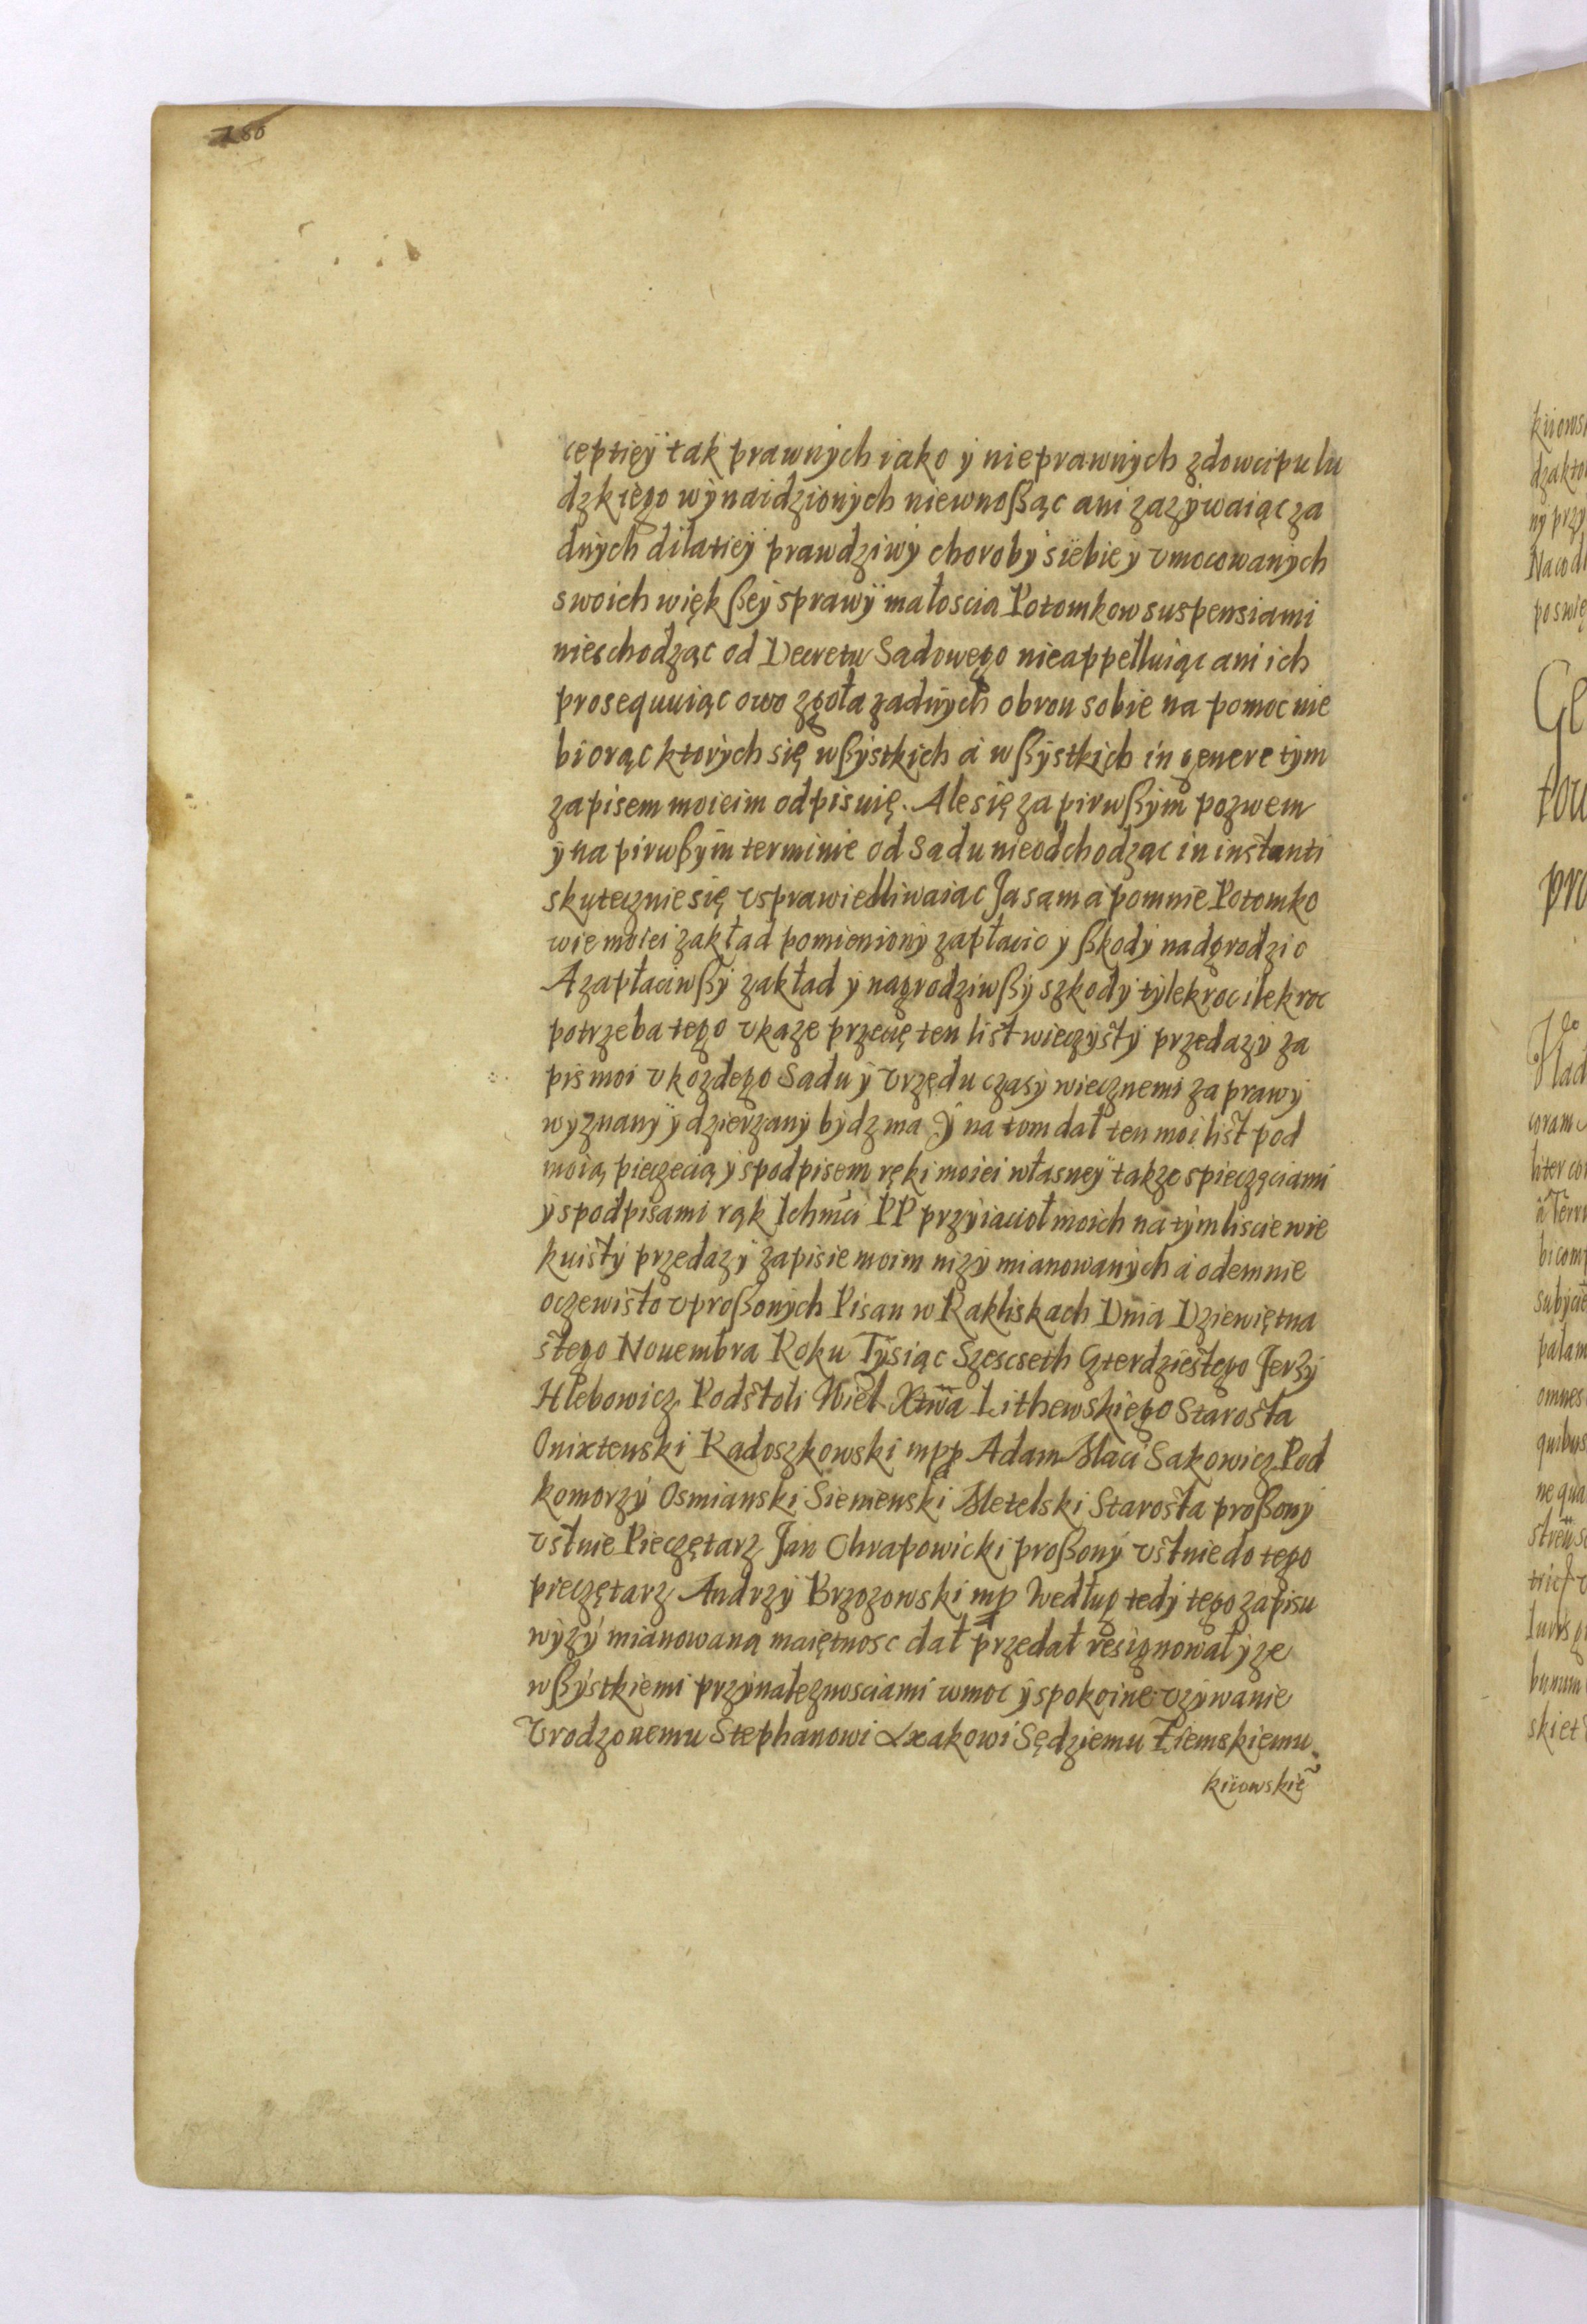 ceptięÿ tak prawnÿch iako ÿ nieprawnÿch zdowcipu lu
dzkięgo wÿnaidzionÿch niewnoßąc ani zazÿwaiąc za
dnÿch dilatięÿ prawdziwÿ chorobÿ siebie y vmocowanÿch
swoich więkßeÿ sprawÿ małoscia Potomkow suspensiami
nieschodząc od Decretu Sadowego nieappelluiąc ani ich
prosequuiąc owo zgoła zadnÿch obron sobie na pomoc nie
biorąc ktorÿch się wßÿstkich á wßÿstkich in genere tÿm
zapisem moieim odpisuię. Ale się za pirwßÿm pozwem
ÿ na pirwßÿm terminie od Sadu nieodchodząc in instanti
skutecznie się vsprawiedliwaiac Ja sam a pomnie Potomko
wie moiei zakład pomienionÿ zapłacic ÿ ßkodÿ nadgrodzic
A zapłaciwßÿ zakład ÿ nagrodziwßÿ szkodÿ tÿlekroc ilekroc
potrzeba tego vkaze przecię ten list wieczÿstÿ przedazÿ za
pis moi v kozdego Sadu ÿ vrzędu czasÿ wiecznemi za prawÿ
wÿznanÿ ÿ dzierzanÿ bÿdz ma Ÿ na tom dał ten moi list pod
moią pieczecią ÿ spodpisem ręki moiei własneÿ takze spieczęciami
ÿ spodpisami rąk Ichmci PP przÿiacioł moich na tÿm liscie wie
kuistÿ przedazÿ zapisie moim nizÿ mianowanÿch á odemnie
oczewisto vproßonÿch Pisan w Rakliskach Dnia Dziewiętna
stego Nouembra Roku Tÿsiąc Szescseth Czterdziestego Jerzÿ
Hlebowicz Podstoli Wiel Xtwa Lithewskiego Starosta
Onixtenski Radoszkowski mpp Adam Maci Sakowicz Pod
komorzÿ Osmianski Siemenski Metelski Starosta proßonÿ
vstnie Pieczętarz Jan Chrapowicki proßonÿ vstnie do tego
pieczętarz Andrzÿ Brzozowski mp Według tedÿ tego zapisu
wÿzÿ mianowaną maiętnosc dał przedał resignował ÿ ze
wßÿstkiemi przÿnaleznosciami wmoc ÿ spokoine vzÿwanie
Vrodzonemu Stephanowi Axakowi Sędziemu Ziemskiemu
kiiowskie